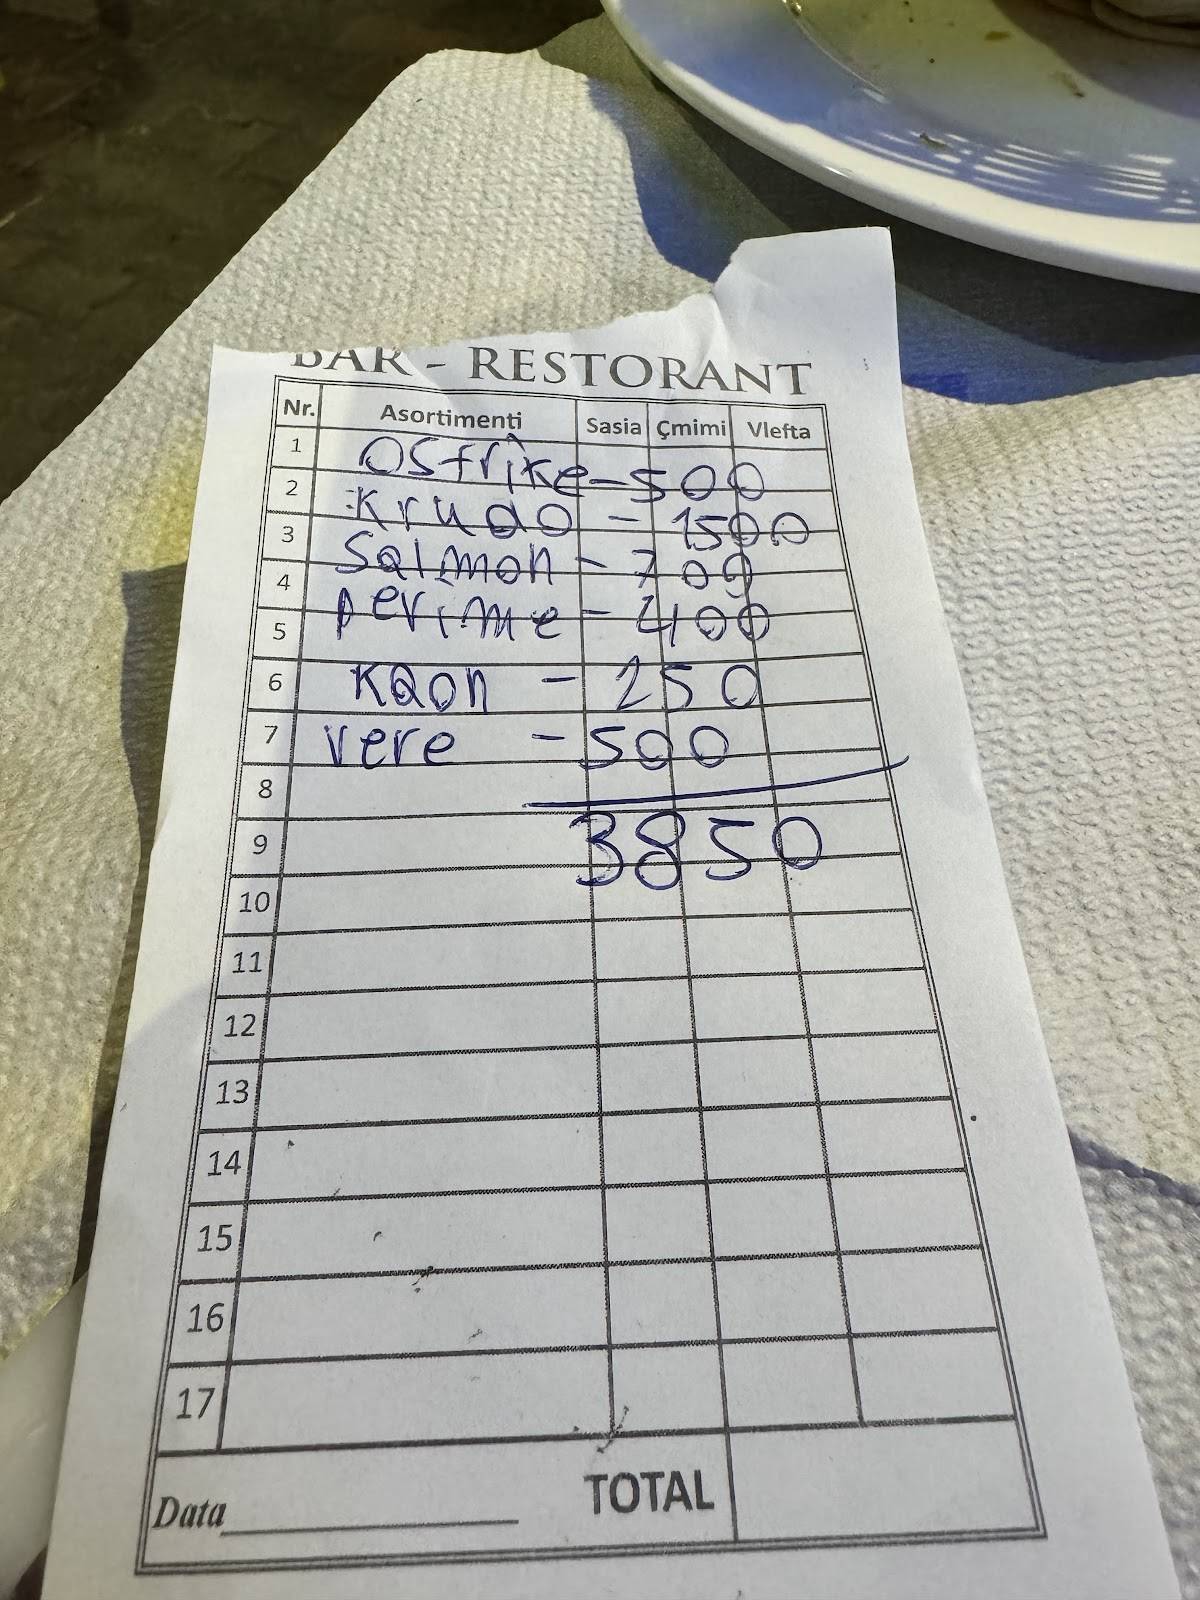 BAR - RESTORANT
Nr. Asortimenti Sasia Çmimi Vlefta
1 Ostrike - 500
2 Krudo - 1500
3 Salmon - 700
4 perime - 400
5
6 KQON - 250
7 vere - 500
8
9 3850
10
11
12
13
14
15
16
17
Data TOTAL